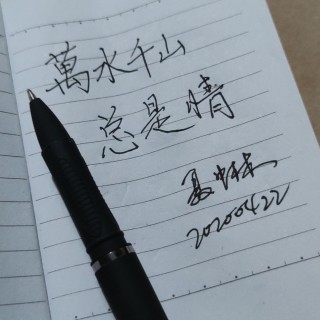 萬水千山
总是情
20200422